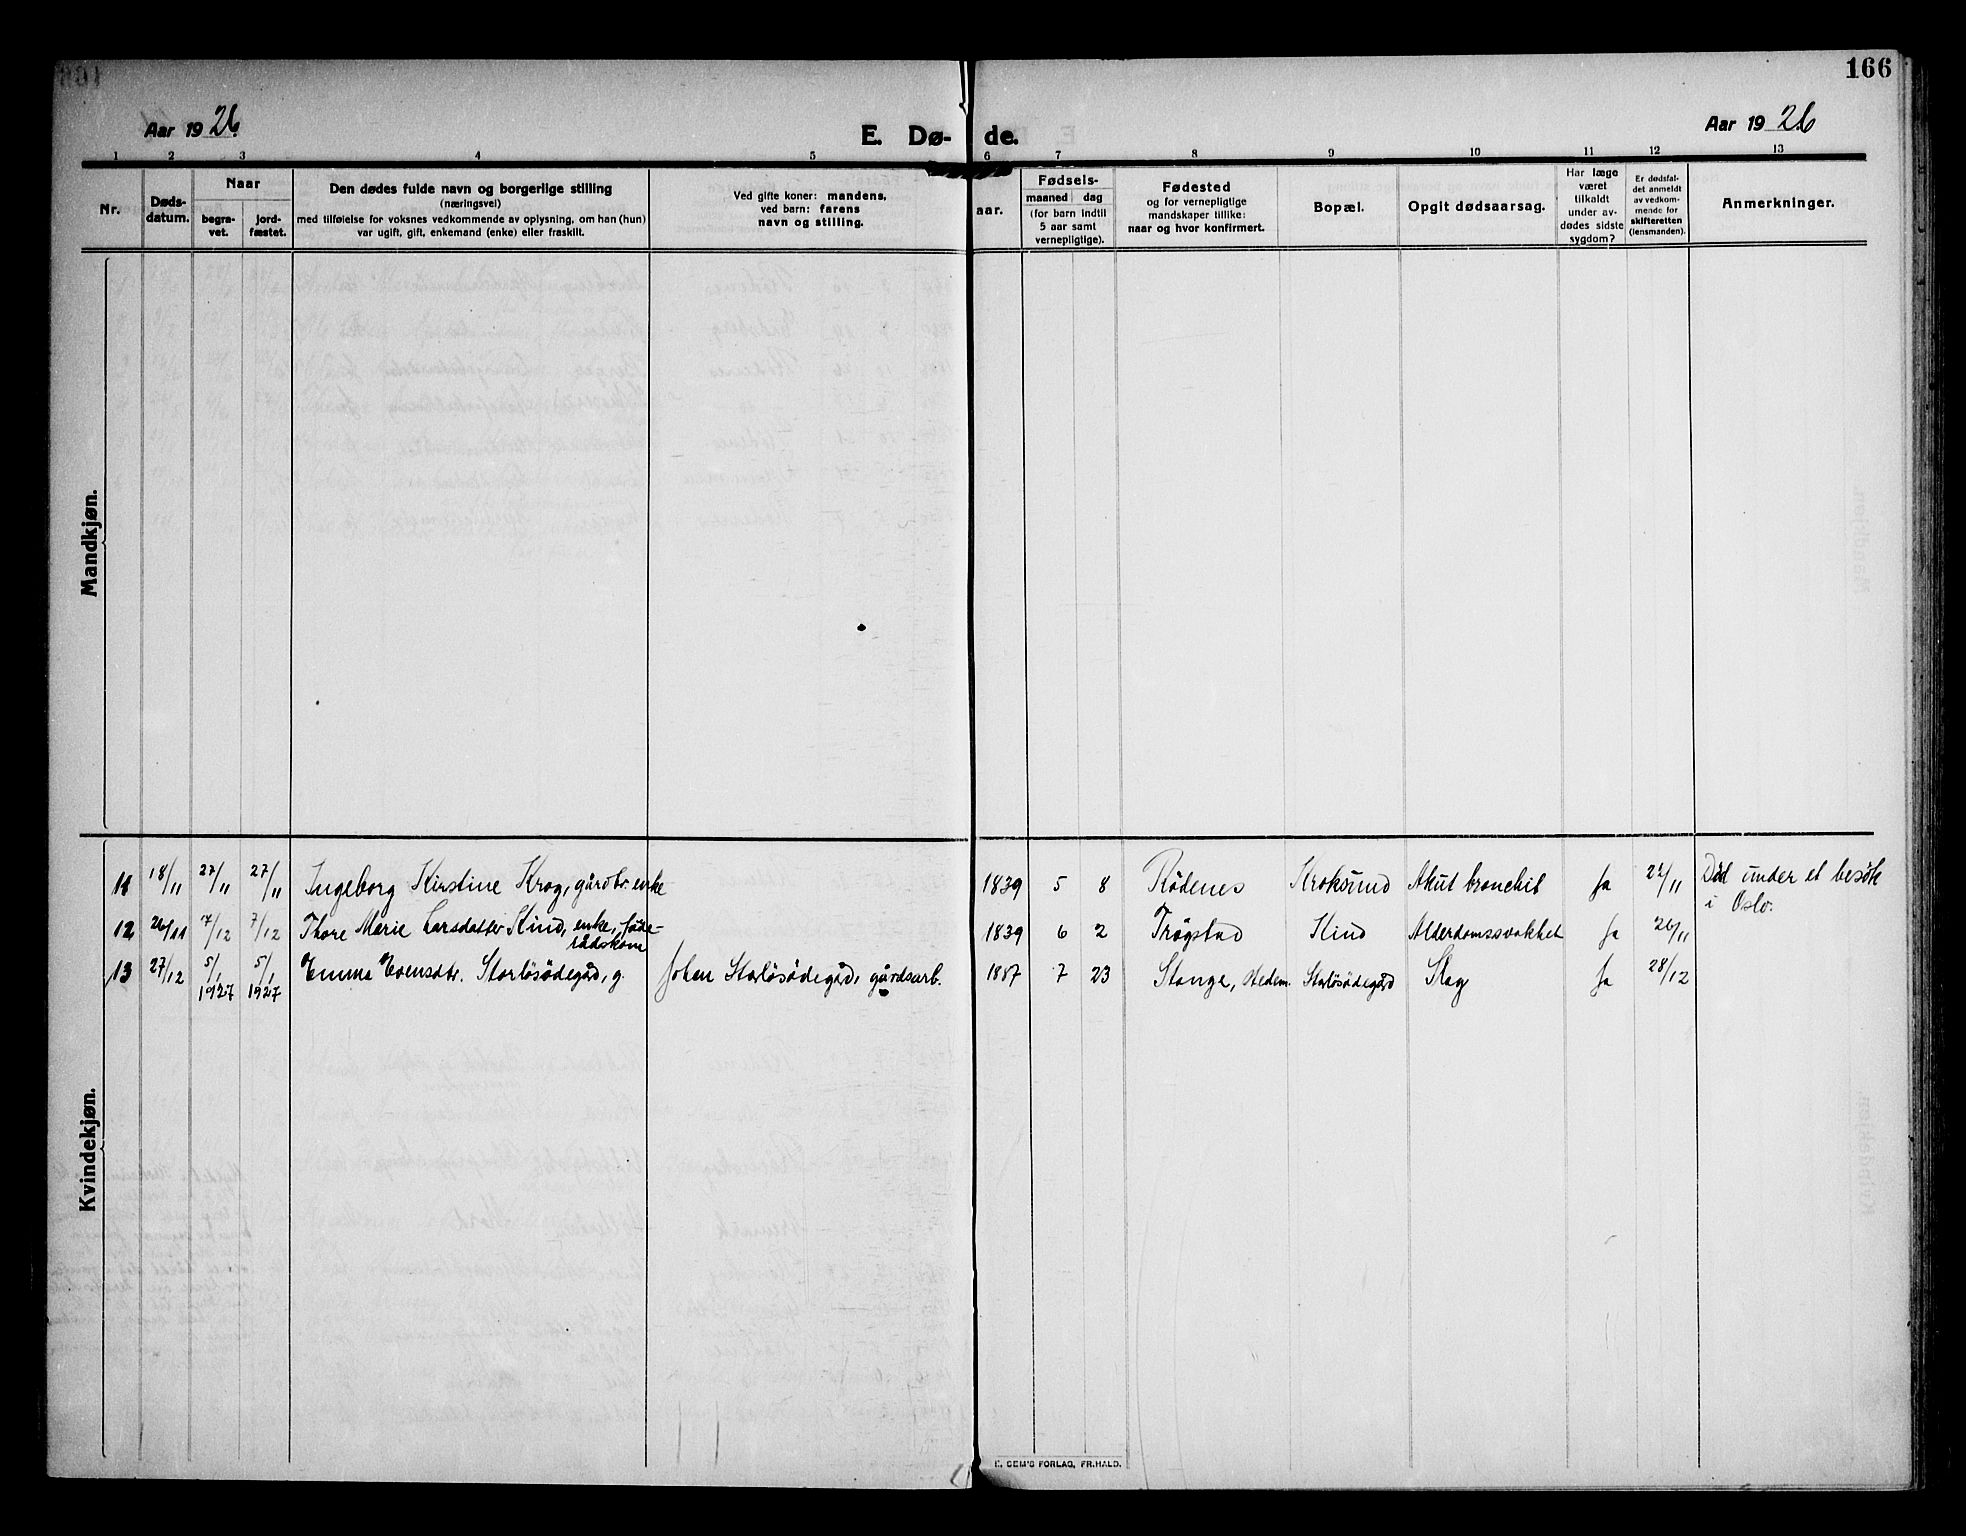 166
Aar 1926
E. Dø- de.
Aar 1926
1 2 3 4 5 6 7 8 9 10 11 12 13
Nr.
Døds-
datum.
Naar
begra-
vet.
jord-
fæstet.
Den dødes fulde navn og borgerlige stilling
(næringsvei)
med tilføielse for voksnes vedkommende av oplysning, om han (hun)
var ugift, gift, enkemand (enke) eller fraskilt.
Ved gifte koner: mandens,
ved barn: farens
navn og stilling.
aar.
Fødsels-
maaned dag
(for barn indtil
5 aar samt
vernepligtige).
Fødested
og for vernepligtige
mandskaper tillike:
naar og hvor konfirmert.
Bopæl.
Opgit dødsaarsag.
Har læge
været
tilkaldt
under av-
dødes sidste
sygdom?
Er dødsfal-
det anmeldt
av vedkom-
mende for
skifteretten
(lensmanden).
Anmerkninger.
Mandkjøn.
Kvindekjøn.
11 18/11 27/11 27/11 Ingeborg Kirstine Krog, gårdbr. enke 1839 5 8 Rödenes Kroksund Akut bronchit ja 22/11 Död under et besök
i Oslo.
12 26/11 7/12 7/12 Thore Marie Larsdatter Kind, enke, føde- 1839 6 2 Trøgstad Kind Alderdomssvakhet ja 26/11
rådskone
13 27/12 5/1 5/1 Emma Evensdtr. Storlösödegård, g. Johan Storlösödegård, gårdsarb. 1887 7 23 Stange, Hedem. Storlösödegård Slag ja 28/12
1927 1927
E. SEM'S FORLAG, FR.HALD.